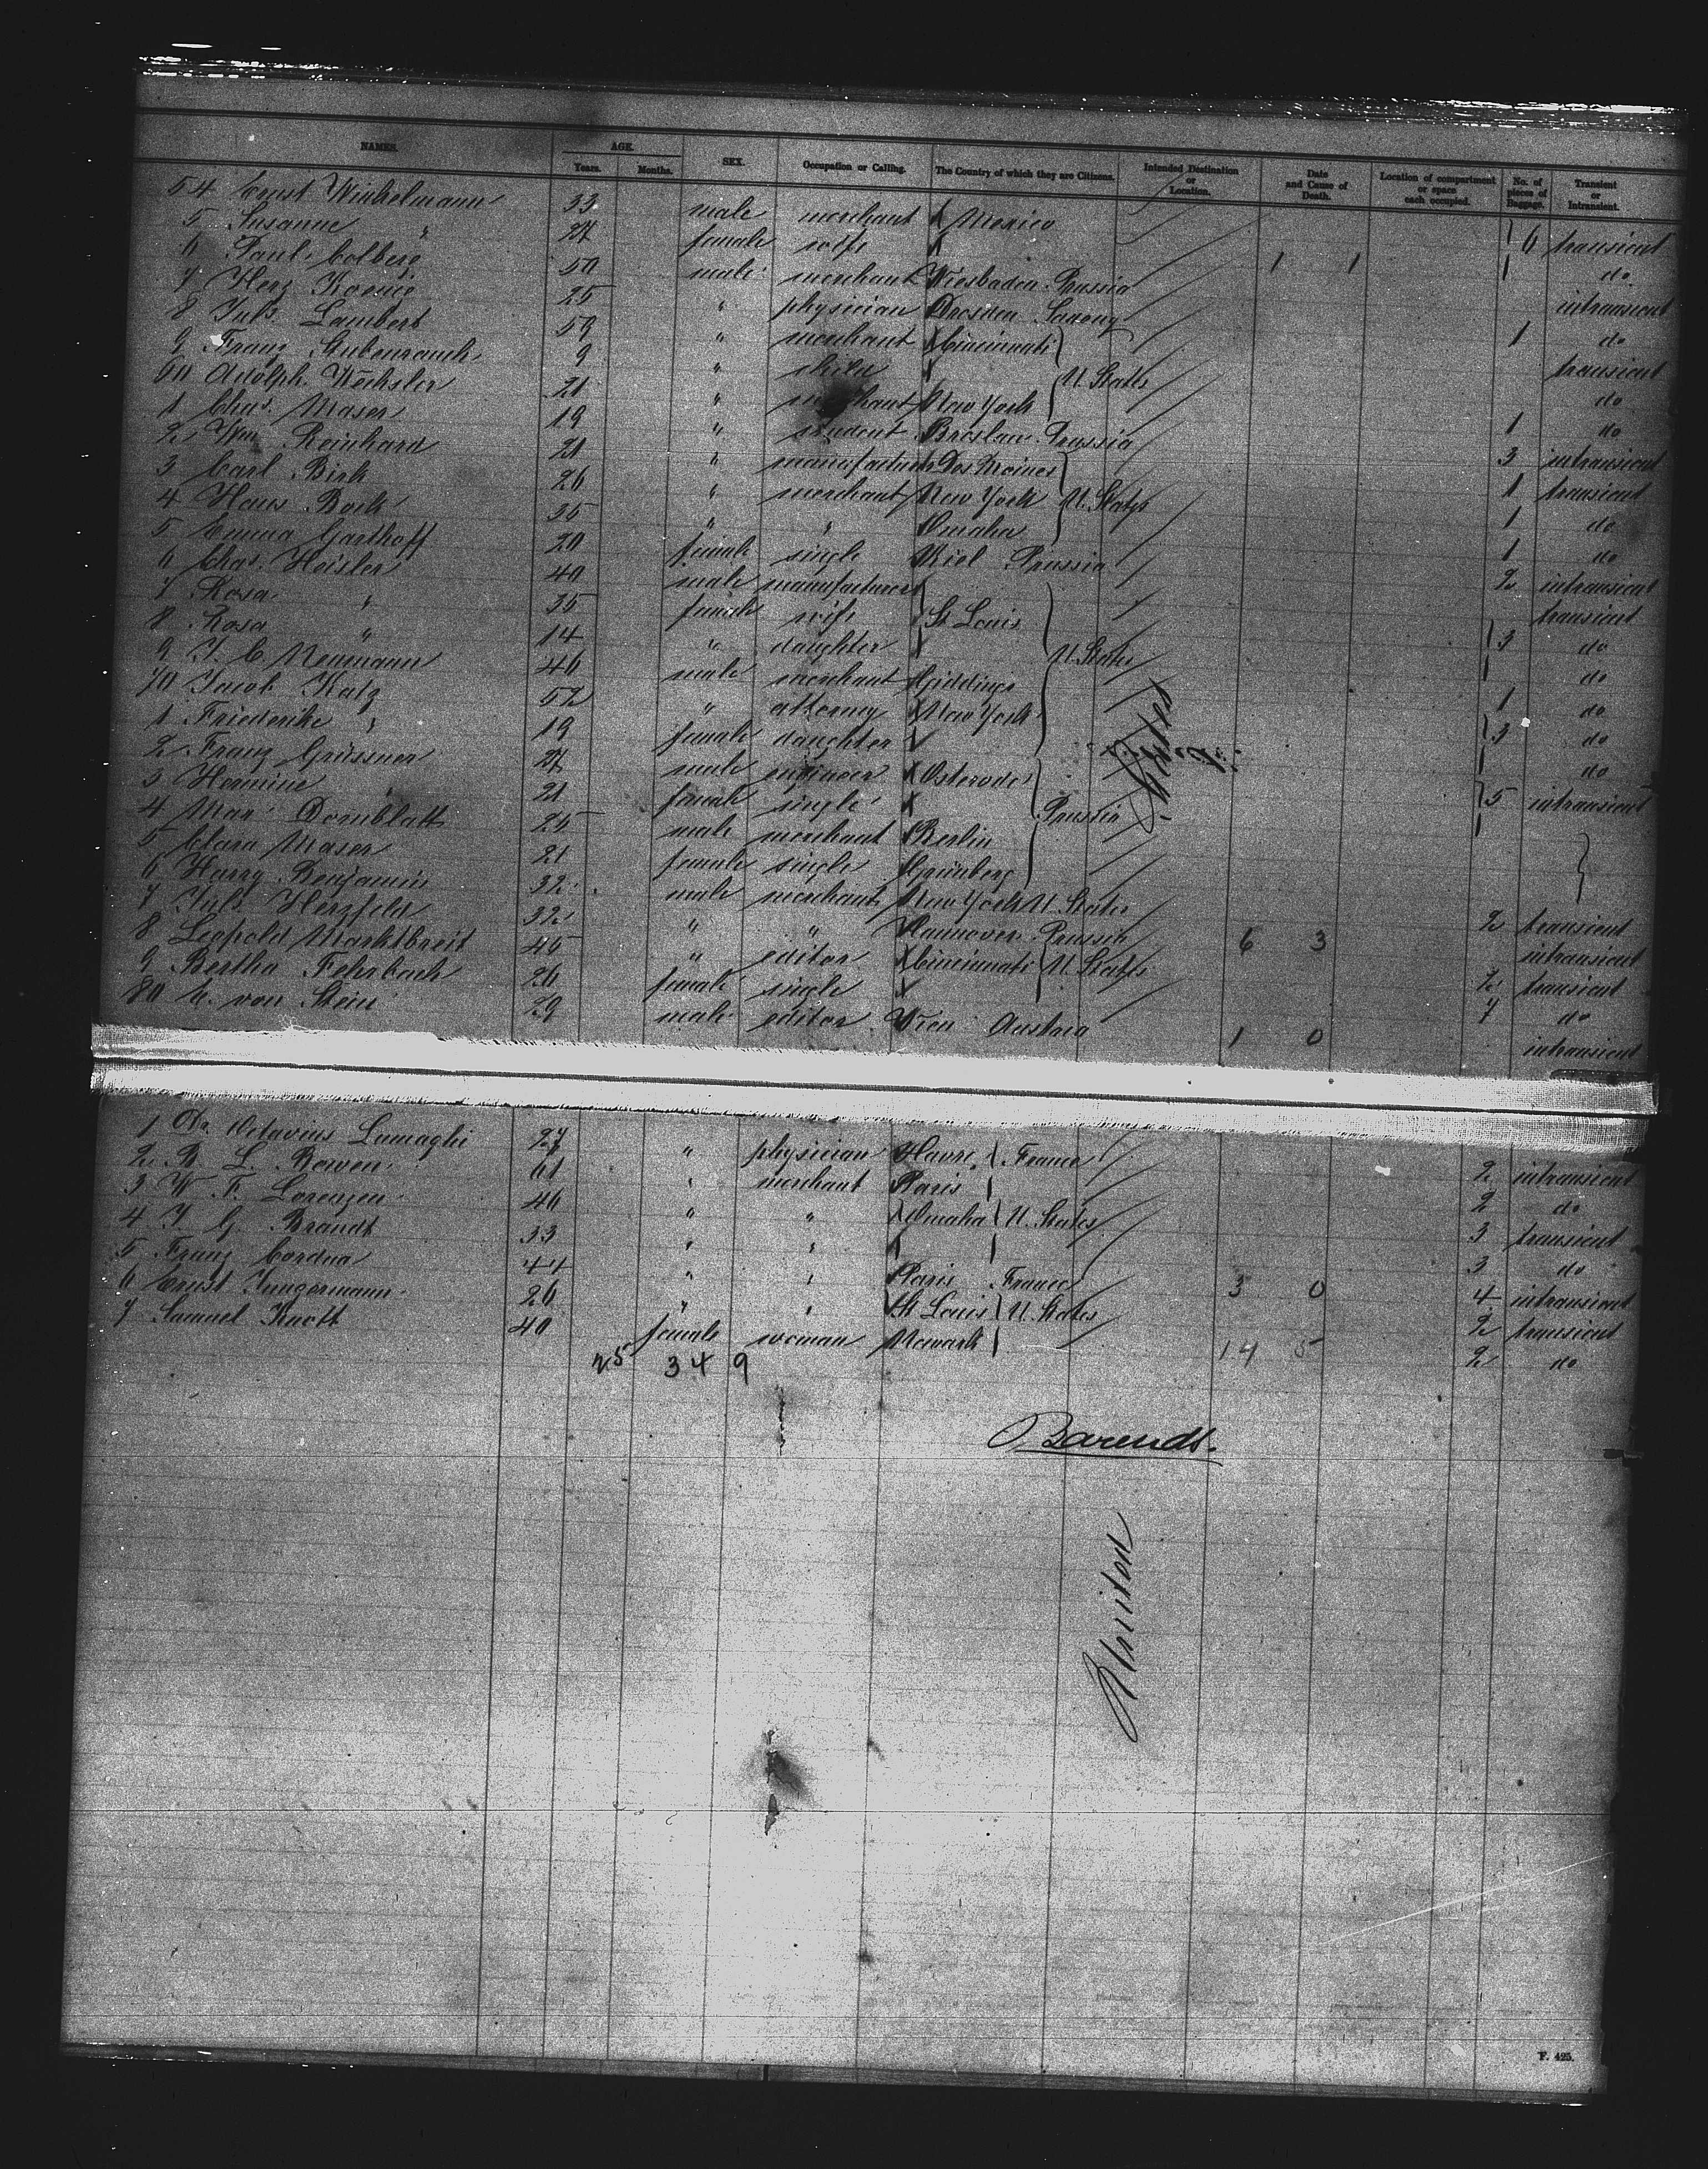 NAMES. AGE. SEX. Occupation or Calling. The Country of which they are Citizens. Intended Destination or Location. Date and Cause of Death. Location of compartment or space each occupied. No. of pieces of Baggage. Transient or Intransient.
Years. Months.
54 Ernst Winkelmann 33 male merchant Mexico 6 transient
5 Susanne " 27 female wife 1 1 do
6 Paul Colberg 50 male merchant Wiesbaden Prussia 1 intransient
7 Herz Koenig 25 " physician Dresden Saxony do
8 Juls. Lambert 59 " merchant Cincinnati 1 transient
9 Franz Stubenrauch 9 " U. States do
60 Adolph Wechsler 21 " merchant New York do
1 Chas. Maser 19 " student Breslau Prussia 1 intransient
2 Wm. Reinhard 21 " manufacturer Des Moines 3 transient
3 Carl Birk 26 " merchant New York U. States 1 do
4 Hans Bock 35 " " Omaha 1 do
5 Emma Garthoff 20 female single Kiel Prussia 1 intransient
6 Chas. Heisler 40 male manufacturer 2 transient
7 Rosa " 35 female wife St. Louis do
8 Rosa " 14 " daughter U. States 3 do
9 J. C. Neumann 46 male merchant Giddings 1 do
70 Jacob Katz 52 " attorney New York do
1 Friederike " 19 female daughter 3 do
2 Franz Grüssner 27 male engineer Osterode intransient
3 Hermine " 21 female single Prussia 5
4 Max Dornblatt 25 male merchant Berlin
5 Clara Maser 21 female single Grünberg
6 Harry Benjamin 32 male merchant New York U. States 2 transient
7 Juls. Herzfeld 32 " " Hannover Prussia 6 3 intransient
8 Leopold Marktbreit 45 " editor Cincinnati U. States 2 transient
9 Bertha Fehrbach 20 female single 7 do
80 E. von Stein 29 male editor Wien Austria 1 0 intransient
1 Dr. Octavius Lumaghi 27 " physician Havre France 2 intransient
2 B. L. Bowen 61 " merchant Paris 2 do
3 W. F. Lorenzen 40 " " Omaha U. States 3 transient
4 J. G. Brandt 33 " " 3 do
5 Franz Cordua 44 " " Paris France 3 0 4 intransient
6 Ernst Jungermann 26 " " St. Louis U. States 2 transient
7 Samuel Knott 40 female woman Newark 14 5 2 do
25 349
Barends.
F. 425.